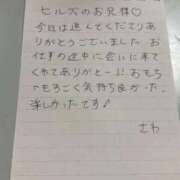 ヒルズのお兄様♡
今日は遊んでくださりあ
りがとうございました お
仕事の途中に会いに来て
くれてありがとーっ おもち
ゃもすごく気持ち良かった。
楽しかったです♪
さわ